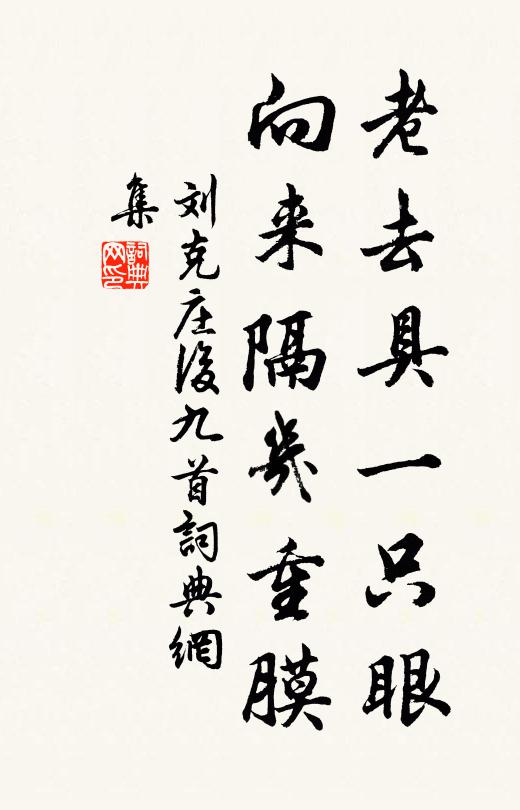 老去具一只眼
向来隔幾重膜
刘克庄後九首詞典網
集
詞典網印